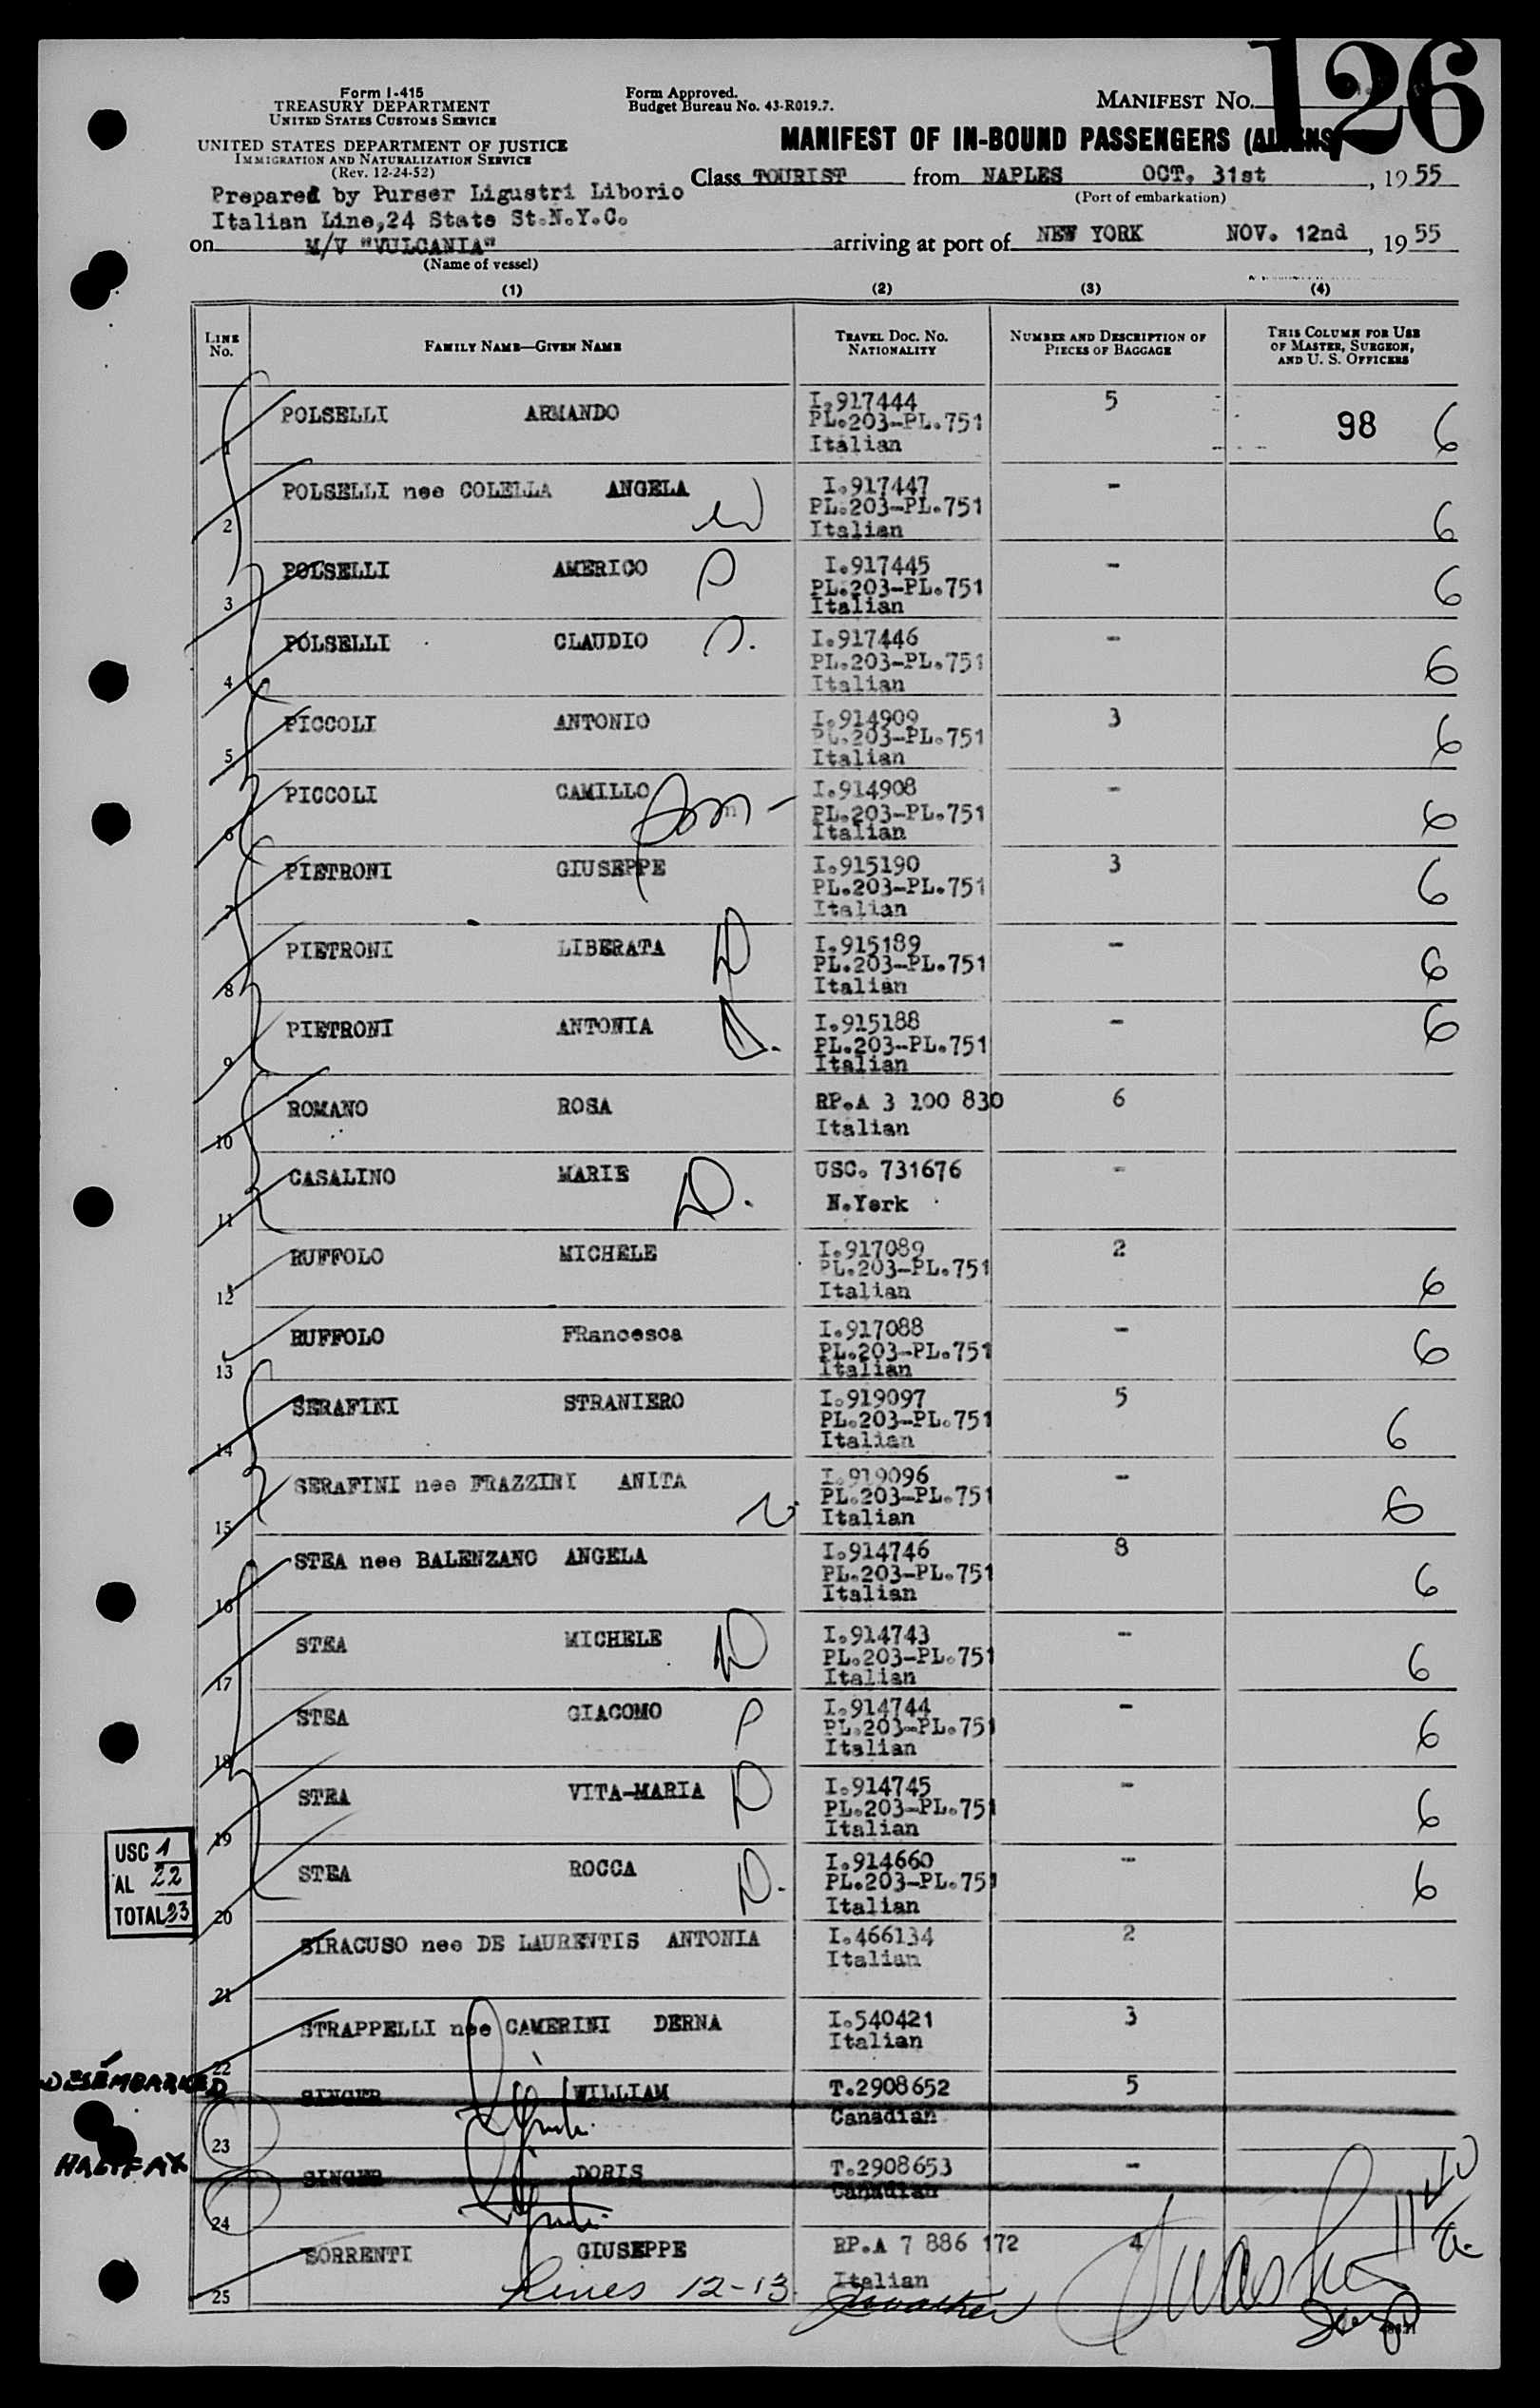 126
Form I-415
TREASURY DEPARTMENT
UNITED STATES CUSTOMS SERVICE
UNITED STATES DEPARTMENT OF JUSTICE
IMMIGRATION AND NATURALIZATION SERVICE
(Rev. 12-24-52)
Form Approved.
Budget Bureau No. 43-R019.7.
MANIFEST NO.
MANIFEST OF IN-BOUND PASSENGERS (ALIENS)
Class TOURIST from NAPLES OCT. 31st, 1955
(Port of embarkation)
Prepared by Purser Ligustri Liborio
Italian Line,24 State St.N.Y.C.
on M/V "VULCANIA" arriving at port of NEW YORK NOV. 12nd, 1955
(Name of vessel)
(1) (2) (3) (4)
LINE No. FAMILY NAME—GIVEN NAME TRAVEL DOC. NO. NATIONALITY NUMBER AND DESCRIPTION OF PIECES OF BAGGAGE THIS COLUMN FOR USE OF MASTER, SURGEON, AND U. S. OFFICERS
1 POLSELLI ARMANDO I.917444 5 98 6
PL.203-PL.751
Italian
2 POLSELLI nee COLELLA ANGELA I.917447 - 6
PL.203-PL.751
Italian
3 POLSELLI AMERICO I.917445 - 6
PL.203-PL.751
Italian
4 POLSELLI CLAUDIO I.917446 - 6
PL.203-PL.751
Italian
5 PICCOLI ANTONIO I.914909 3 6
PL.203-PL.751
Italian
6 PICCOLI CAMILLO I.914908 - 6
PL.203-PL.751
Italian
7 PIETRONI GIUSEPPE I.915190 3 6
PL.203-PL.751
Italian
8 PIETRONI LIBERATA I.915189 - 6
PL.203-PL.751
Italian
9 PIETRONI ANTONIA I.915188 - 6
PL.203-PL.751
Italian
10 ROMANO ROSA RP.A 3 100 830 6
Italian
11 CASALINO MARIE USC. 731676 -
N.York
12 RUFFOLO MICHELE I.917089 2 6
PL.203-PL.751
Italian
13 RUFFOLO FRancesca I.917088 - 6
PL.203-PL.751
Italian
14 SERAFINI STRANIERO I.919097 5 6
PL.203-PL.751
Italian
15 SERAFINI nee FRAZZINI ANITA I.919096 - 6
PL.203-PL.751
Italian
16 STEA nee BALENZANO ANGELA I.914746 8 6
PL.203-PL.751
Italian
17 STEA MICHELE I.914743 - 6
PL.203-PL.751
Italian
18 STEA GIACOMO I.914744 - 6
PL.203-PL.751
Italian
19 STEA VITA-MARIA I.914745 - 6
PL.203-PL.751
Italian
20 STEA ROCCA I.914660 - 6
PL.203-PL.751
Italian
USC 1
AL 22
TOTAL 23
21 SIRACUSO nee DE LAURENTIS ANTONIA I.466134 2
Italian
22 STRAPPELLI nee CAMERINI DERNA I.540421 3
Italian
DESEMBARKED
HALIFAX
23 SINGER WILLIAM T.2908652 5
Canadian
24 SINGER DORIS T.2908653 -
Canadian
25 SORRENTI GIUSEPPE RP.A 7 886 172 4
Italian
Lines 12-13